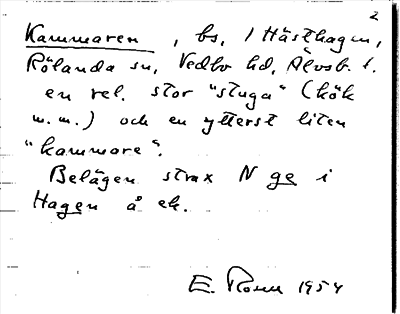 2
Kammaren, bs, i Hästhagen,
Rölanda sn, Vedbo hd, Älvsb. l.
en rel. stor "stuga" (kök
m.m.) och en ytterst liten
"kammare".
Belägen strax N ge i
Hagen å ek.
E. Rosn 1954